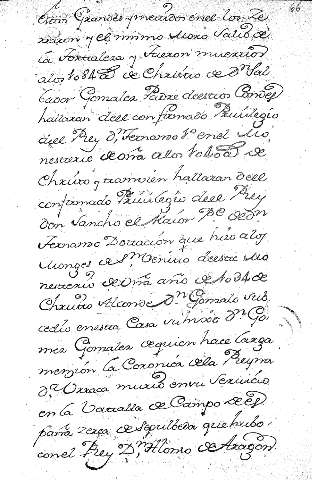 66
eran Grandes y mecidos en el los ze
rraron y el mismo Moro salio de
la fortaleza y fueron muertos
alos 1084 de Christo de Dn Sal
bador Gonzalez Padre de estos Condes
hallaran deel confirmado Priuilegio
del Rey Dn Fernamo 1o en el Mo
nesterio de oña alos de
Christo y tramvien hallaran deel
confirmado Priuilegio deel Rey
Don Sancho el Maior Pe de Dn
Fernamo Donacion que hizo alos
Monges de Sn Benito deeste Mo
nesterio de oña año de 1034 de
Christo Alconde Dn Gonzalo sub
cedio en esta Casa su hixo Dn Go
mez Gonzalez de quien hace larga
menzion la Coronica de la Reyna
Da Urraca murio en su serbicio
en la Vatalla de Campo de es
paña zerca de sepulbeda que hubo
con el Rey Dn Alonso de Aragon